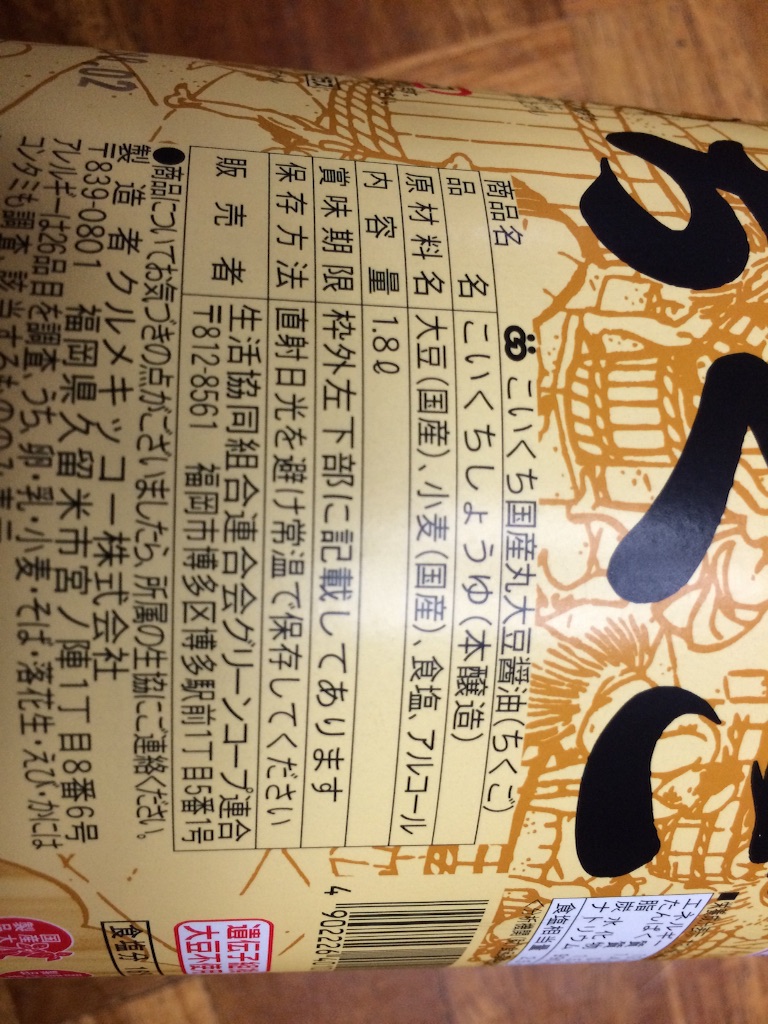 商品名 こいくち国産丸大豆醤油(ちくご)
品名 こいくちしょうゆ(本醸造)
原材料名 大豆(国産)、小麦(国産)、食塩、アルコール
内容量 1.8ℓ
賞味期限 枠外左下部に記載してあります
保存方法 直射日光を避け常温で保存してください
販売者 生活協同組合連合会グリーンコープ連合
〒812-8561 福岡市博多区博多駅前1丁目5番1号
●商品についてお気づきの点がございましたら、所属の生協にご連絡ください。
製造者 クルメキッコー株式会社
〒839-0801 福岡県久留米市宮ノ陣1丁目8番6号
アレルギーは26品目を調査、うち、卵・乳・小麦・そば・落花生・えび・かには
コンタミも調査
ちくご
4 902226
遺伝子組
大豆不
食塩分
国産大
製品
食塩相当量